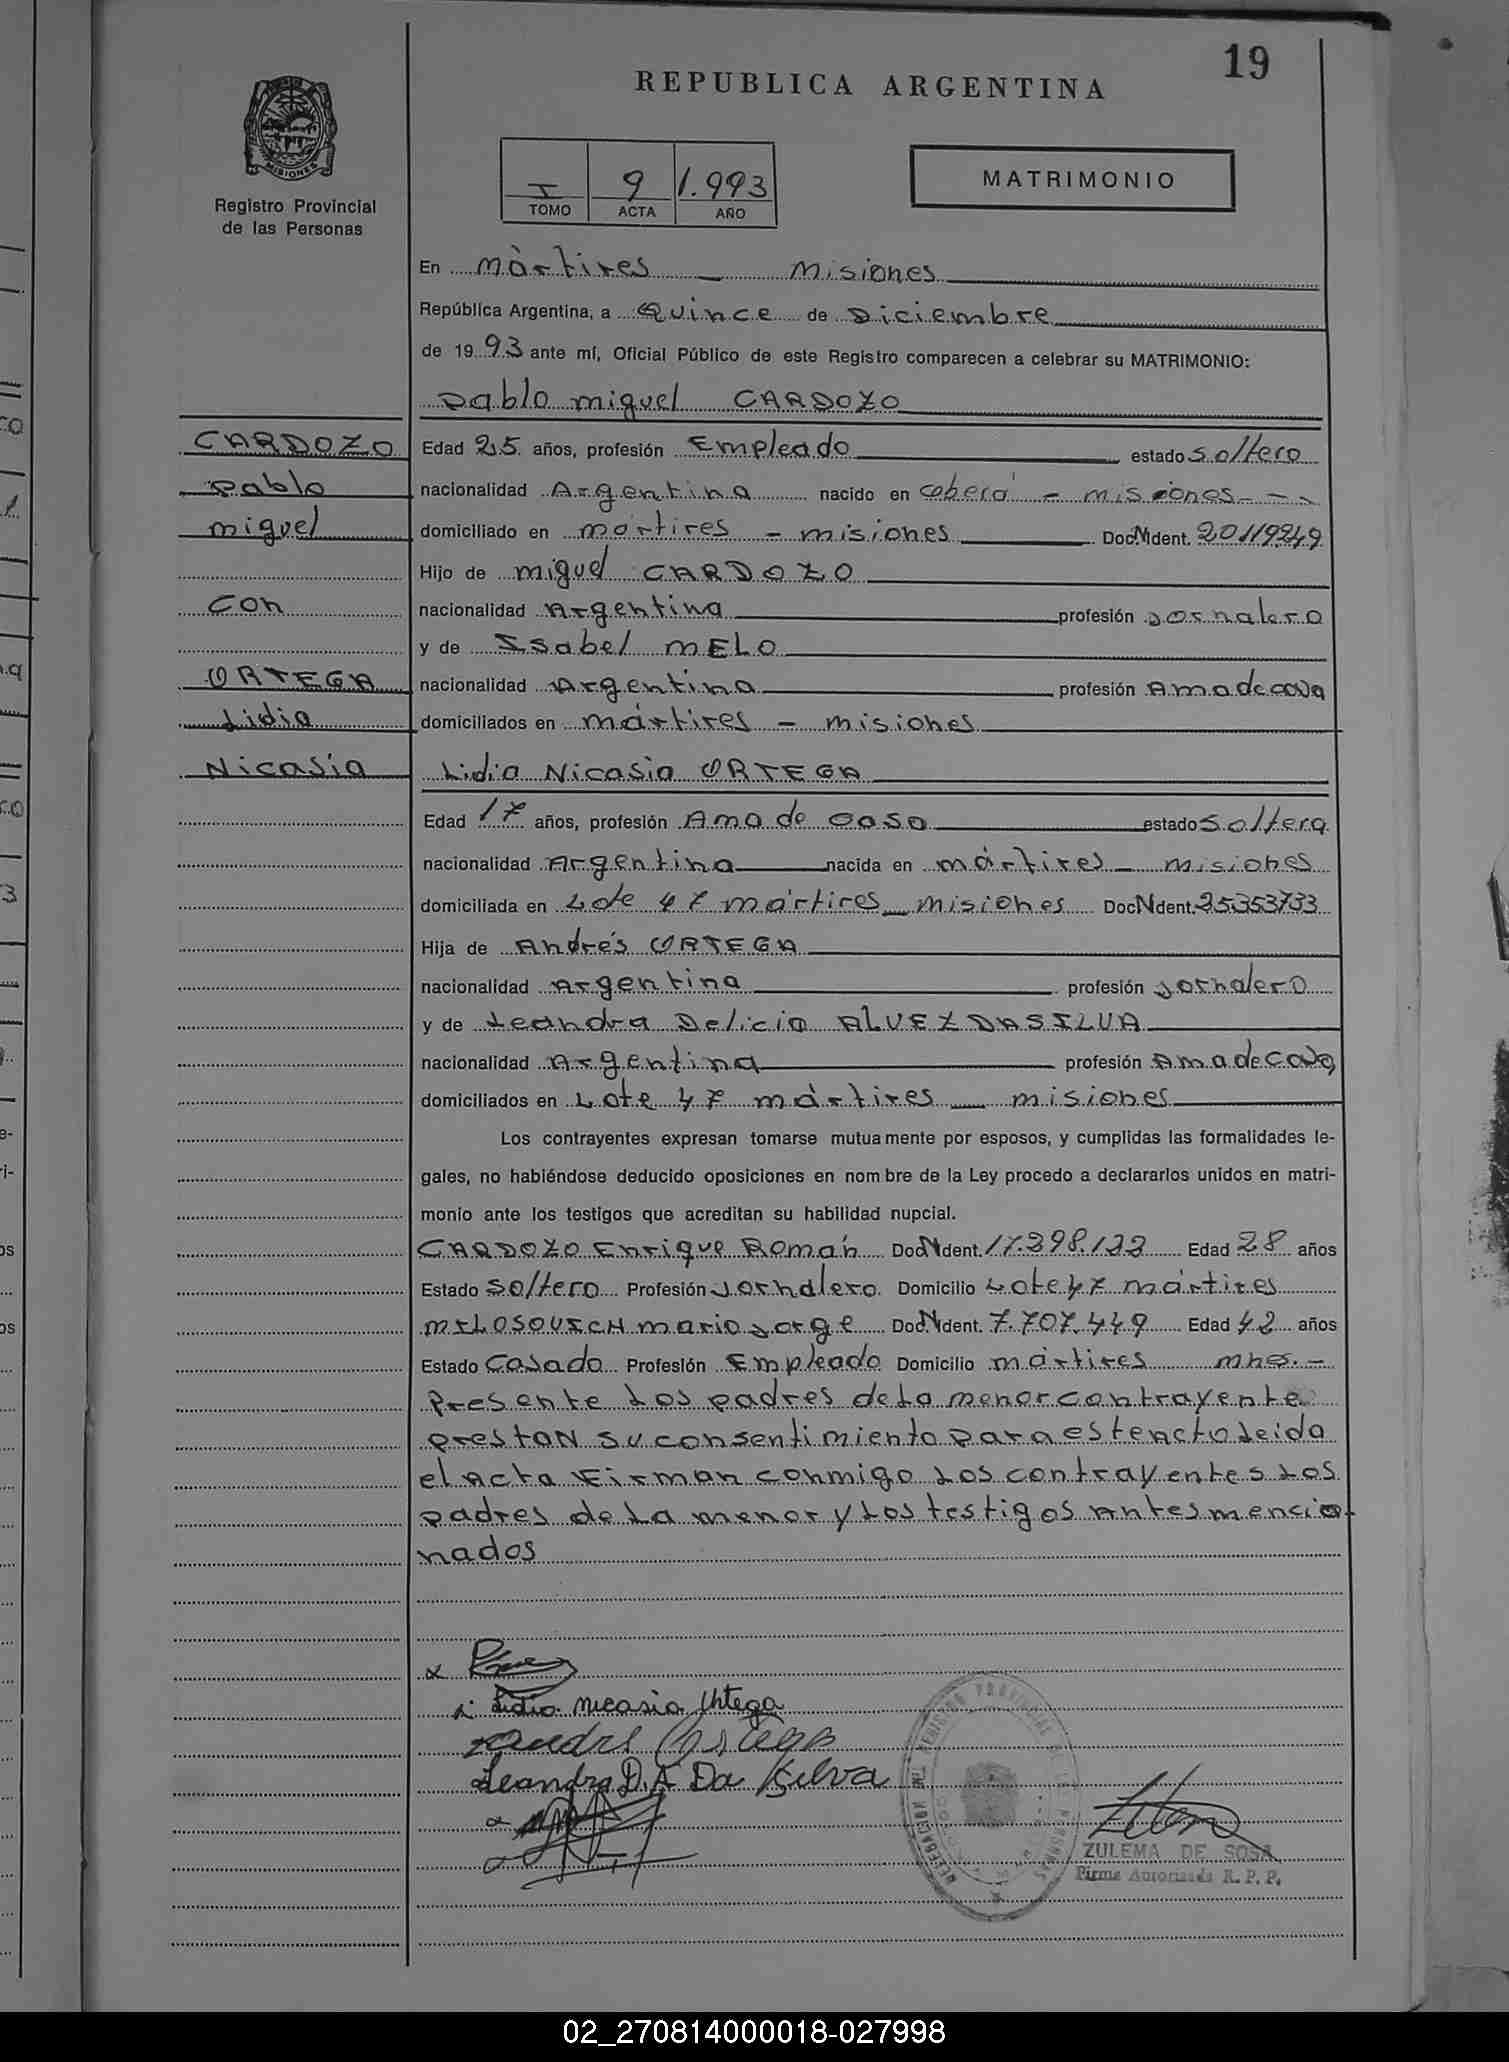 19
REPUBLICA ARGENTINA
MISIONES
Registro Provincial
de las Personas
I 9 1.993
TOMO ACTA AÑO
MATRIMONIO
En Mártires - Misiones
República Argentina, a Quince de Diciembre
de 1993 ante mí, Oficial Público de este Registro comparecen a celebrar su MATRIMONIO:
Pablo Miguel CARDOZO
CARDOZO
Pablo
Miguel
Con
ORTEGA
Lidia
Nicasia
Edad 25 años, profesión Empleado estado soltero
nacionalidad Argentina nacido en - Misiones
domiciliado en Mártires - Misiones Doc.N Ident. 20119249
Hijo de Miguel CARDOZO
nacionalidad Argentina profesión Jornalero
y de Isabel MELO
nacionalidad Argentina profesión Ama de casa
domiciliados en Mártires - Misiones
Lidia Nicasia ORTEGA
Edad 17 años, profesión Ama de casa estado soltera
nacionalidad Argentina nacida en Mártires - Misiones
domiciliada en Lote 47 Mártires - Misiones Doc N Ident. 25353733
Hija de Andrés ORTEGA
nacionalidad Argentina profesión Jornalero
y de Leandra Delicia ALVEZ DASILVA
nacionalidad Argentina profesión Ama de Casa
domiciliados en Lote 47 Mártires - Misiones
Los contrayentes expresan tomarse mutuamente por esposos, y cumplidas las formalidades le-
gales, no habiéndose deducido oposiciones en nombre de la Ley procedo a declararlos unidos en matri-
monio ante los testigos que acreditan su habilidad nupcial.
CARDOZO Enrique Román Doc.N Ident. 17.398.133 Edad 28 años
Estado soltero Profesión Jornalero Domicilio Lote 47 Mártires
MILOSOVICH Mario Jorge Doc.N Ident. 7.707.449 Edad 42 años
Estado Casado Profesión Empleado Domicilio Mártires Mnes.-
Presente los padres de la menor contrayente
prestan su consentimiento para este acto leida
el acta Firman conmigo los contrayentes los
padres de la menor y los testigos antes mencio-
nados
Lidia Nicasia Ortega
Andres Ortega
Leandra D. A Da Silva
ZULEMA DE SOSA
Firma Autorizada R. P. P.
02_270814000018-027998